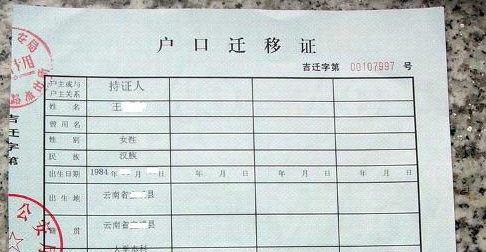 户口迁移证
吉迁字第 00107997 号
户主或与
户主关系 持证人
姓名 王
曾用名
性别 女性
民族 汉族
出生日期 1984年 月 日 年 月 日 年 月 日 年 月 日
出生地 云南省 县
籍贯 云南省 县
吉迁字第
公安局